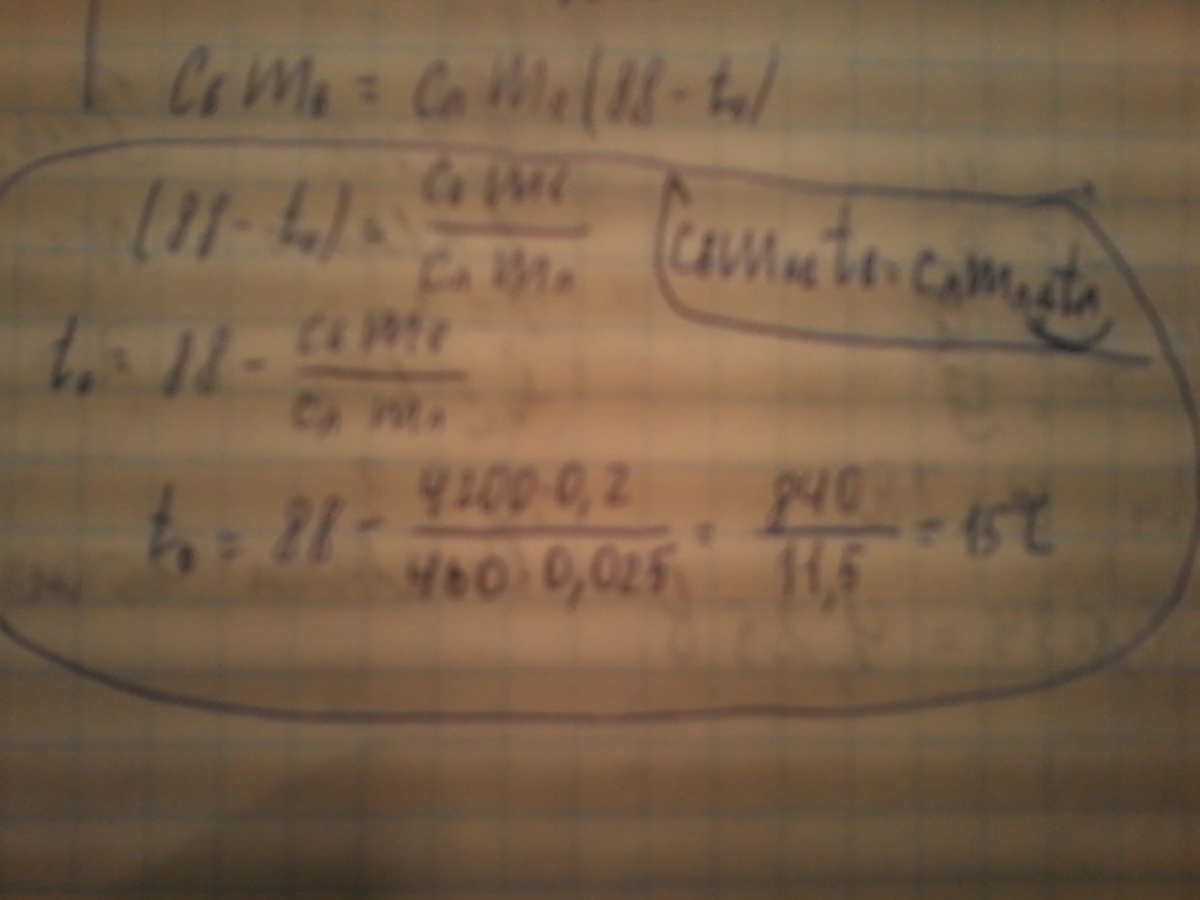 CвMв = CпMп(88-t₀)
(88-t₀) = CвMв / CпMп
CвMв tв = CпMп tп
t₀ = 88 - CвMв / CпMп
t₀ = 88 - 4200·0,2 / 460·0,025 = 840 / 11,5 = 15℃